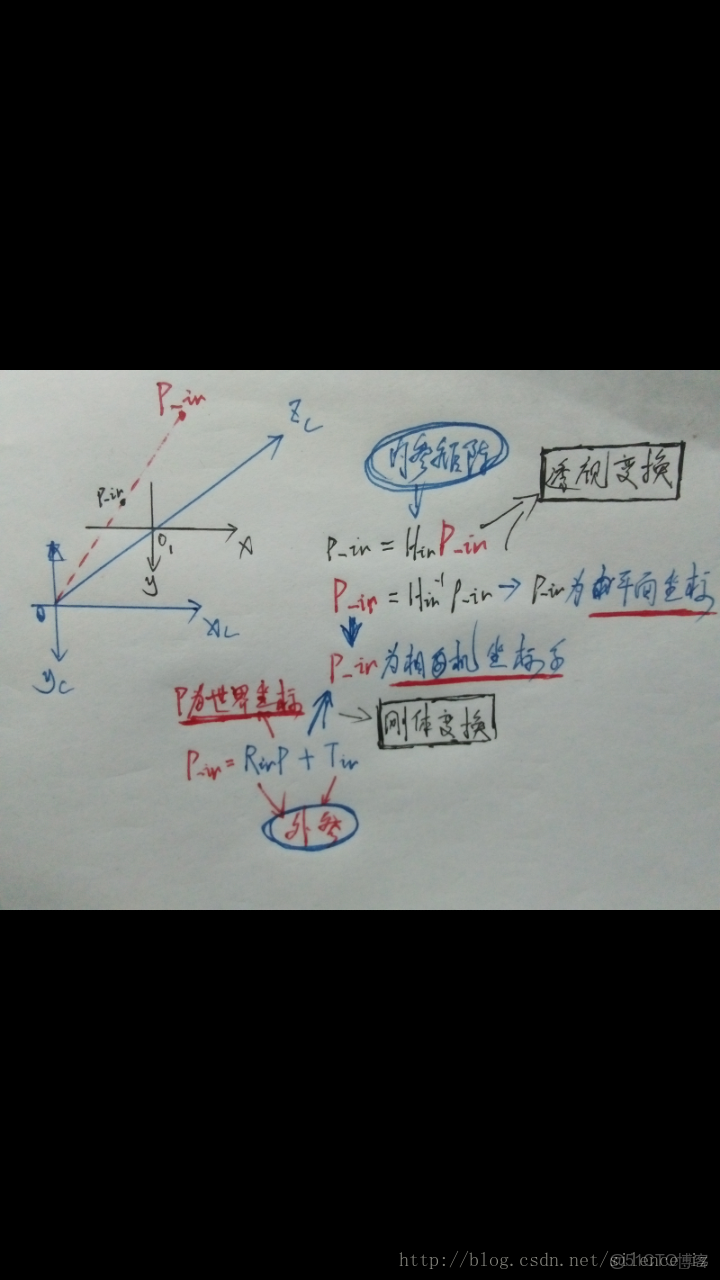 P_ir
Zc
p_ir
O1
X
y
O
Xc
yc
内参矩阵
透视变换
p_ir = Hir P_ir
P_ir = Hir⁻¹ p_ir → p_ir为 平面坐标
P_ir为相机坐标系
P为世界坐标
刚体变换
P_ir = Rir P + Tir
外参
http://blog.csdn.net/silence_iz
@51CTO博客